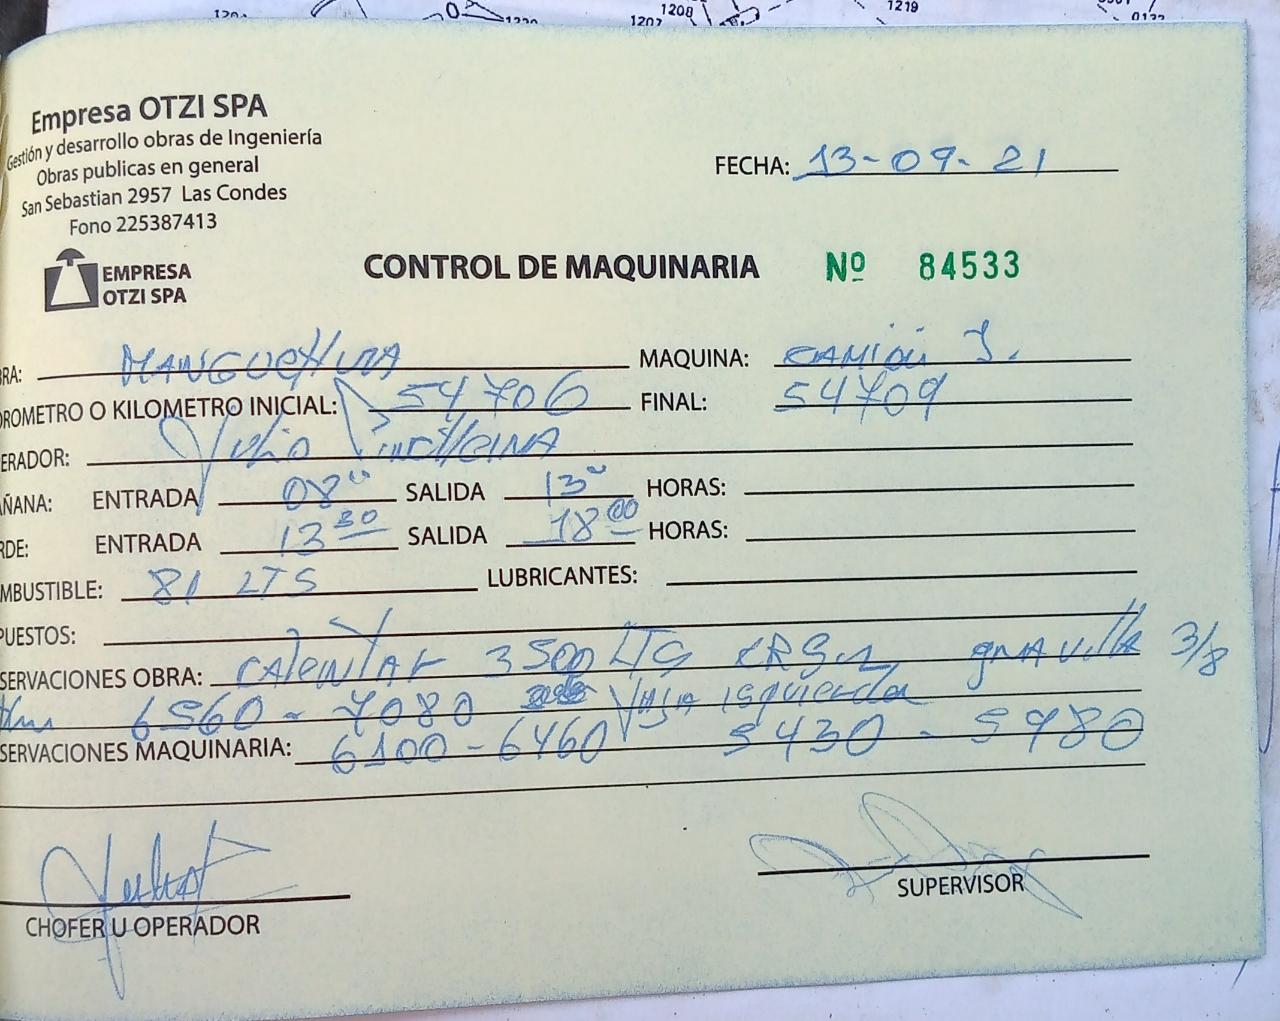 1208
1219
1207
1220
0132
Empresa OTZI SPA
Gestión y desarrollo obras de Ingeniería
Obras publicas en general
San Sebastian 2957 Las Condes
Fono 225387413
FECHA: 13-09-21
EMPRESA
OTZI SPA
CONTROL DE MAQUINARIA Nº 84533
RA: MAQUINA: CAMIÓN
OROMETRO O KILOMETRO INICIAL: 54706 FINAL: 54709
ERADOR: Julio
AÑANA: ENTRADA 08 SALIDA 13 HORAS:
RDE: ENTRADA 13 30 SALIDA 18 00 HORAS:
MBUSTIBLE: 81 LTS LUBRICANTES:
PUESTOS:
SERVACIONES OBRA: CALENTAR 3500 LTS gravilla 3/8
6560 - 7080 Faja izquierda
SERVACIONES MAQUINARIA: 6100 - 6460 5430 - 5980
CHOFER U OPERADOR
SUPERVISOR